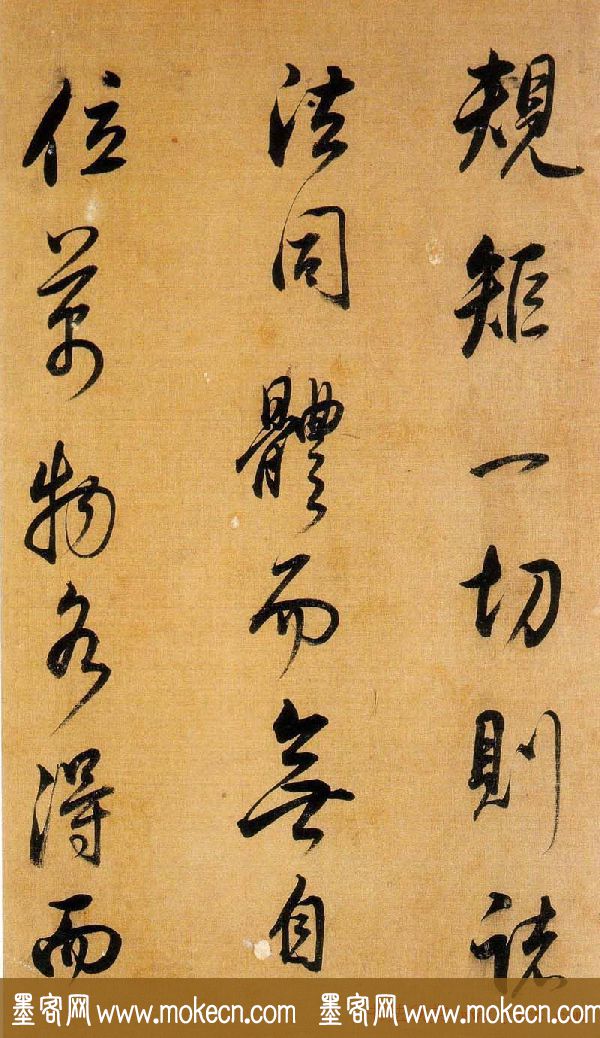 規矩一切則諸
法同體而無自
位萬物各得而
墨客网 www.mokecn.com 墨客网 www.mokecn.com